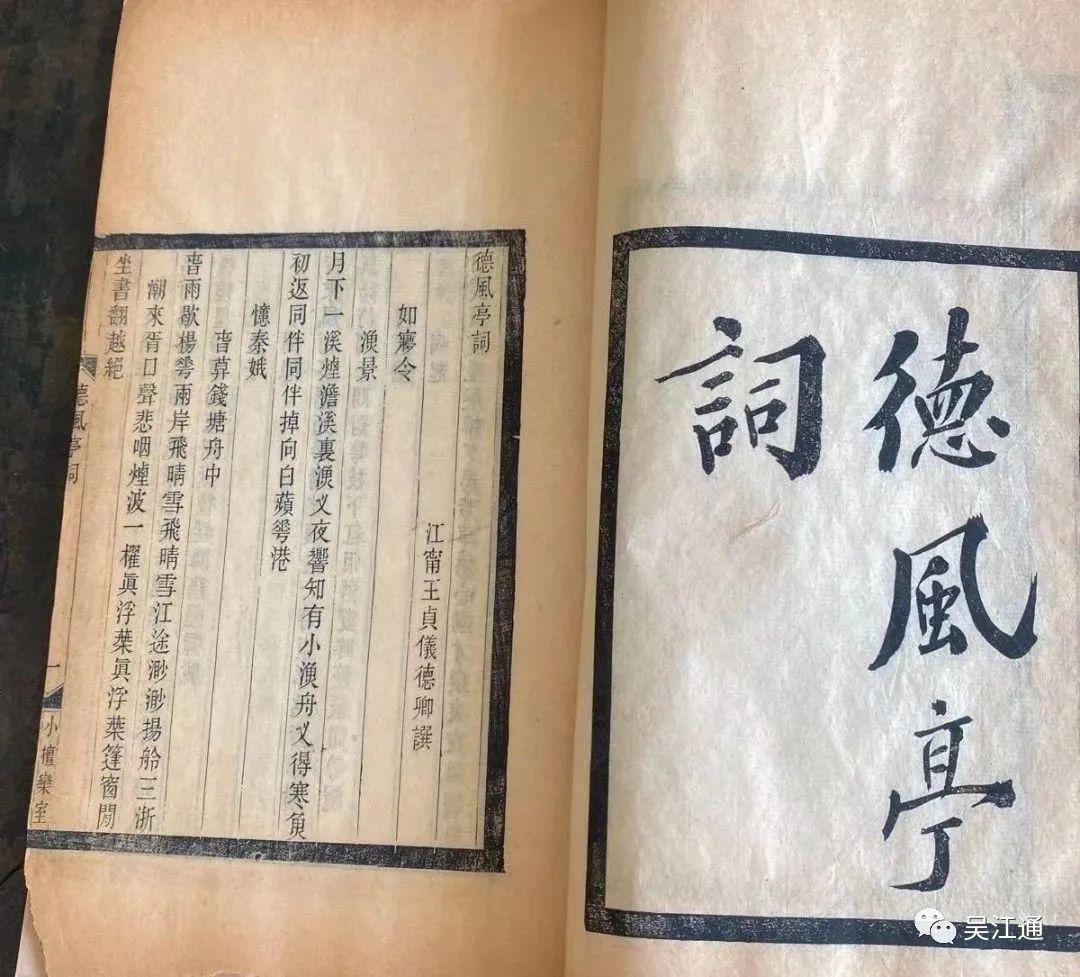 德風亭
詞
德風亭詞
江甯王貞儀德卿譔
如㝱令
漁景
月下一溪煙澹溪裏漁乂夜響知有小漁舟乂得寒魚
初返同伴同伴掉向白蘋蕚港
憶秦娥
萅萛錢塘舟中
萅雨歇楊蕚兩岸飛晴雪飛晴雪江途渺渺揚舲三浙
潮來胥口聲悲咽煙波一櫂眞浮葉眞浮葉篷窗閒
坐書翻越絕
德風亭詞
一
小檀欒室
吴江通